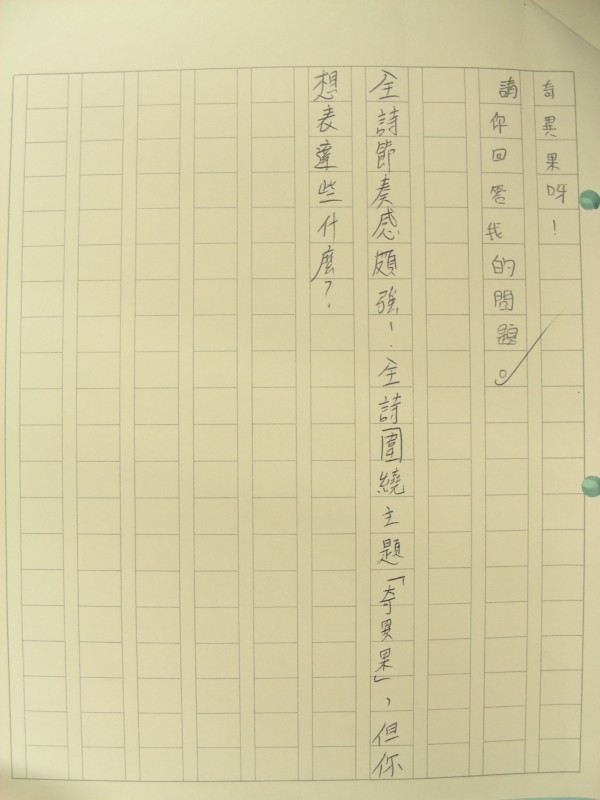 奇異果呀！
請你回答我的問題。
全詩節奏感頗強！全詩圍繞主題「奇異果」，但你
想表達些什麼？